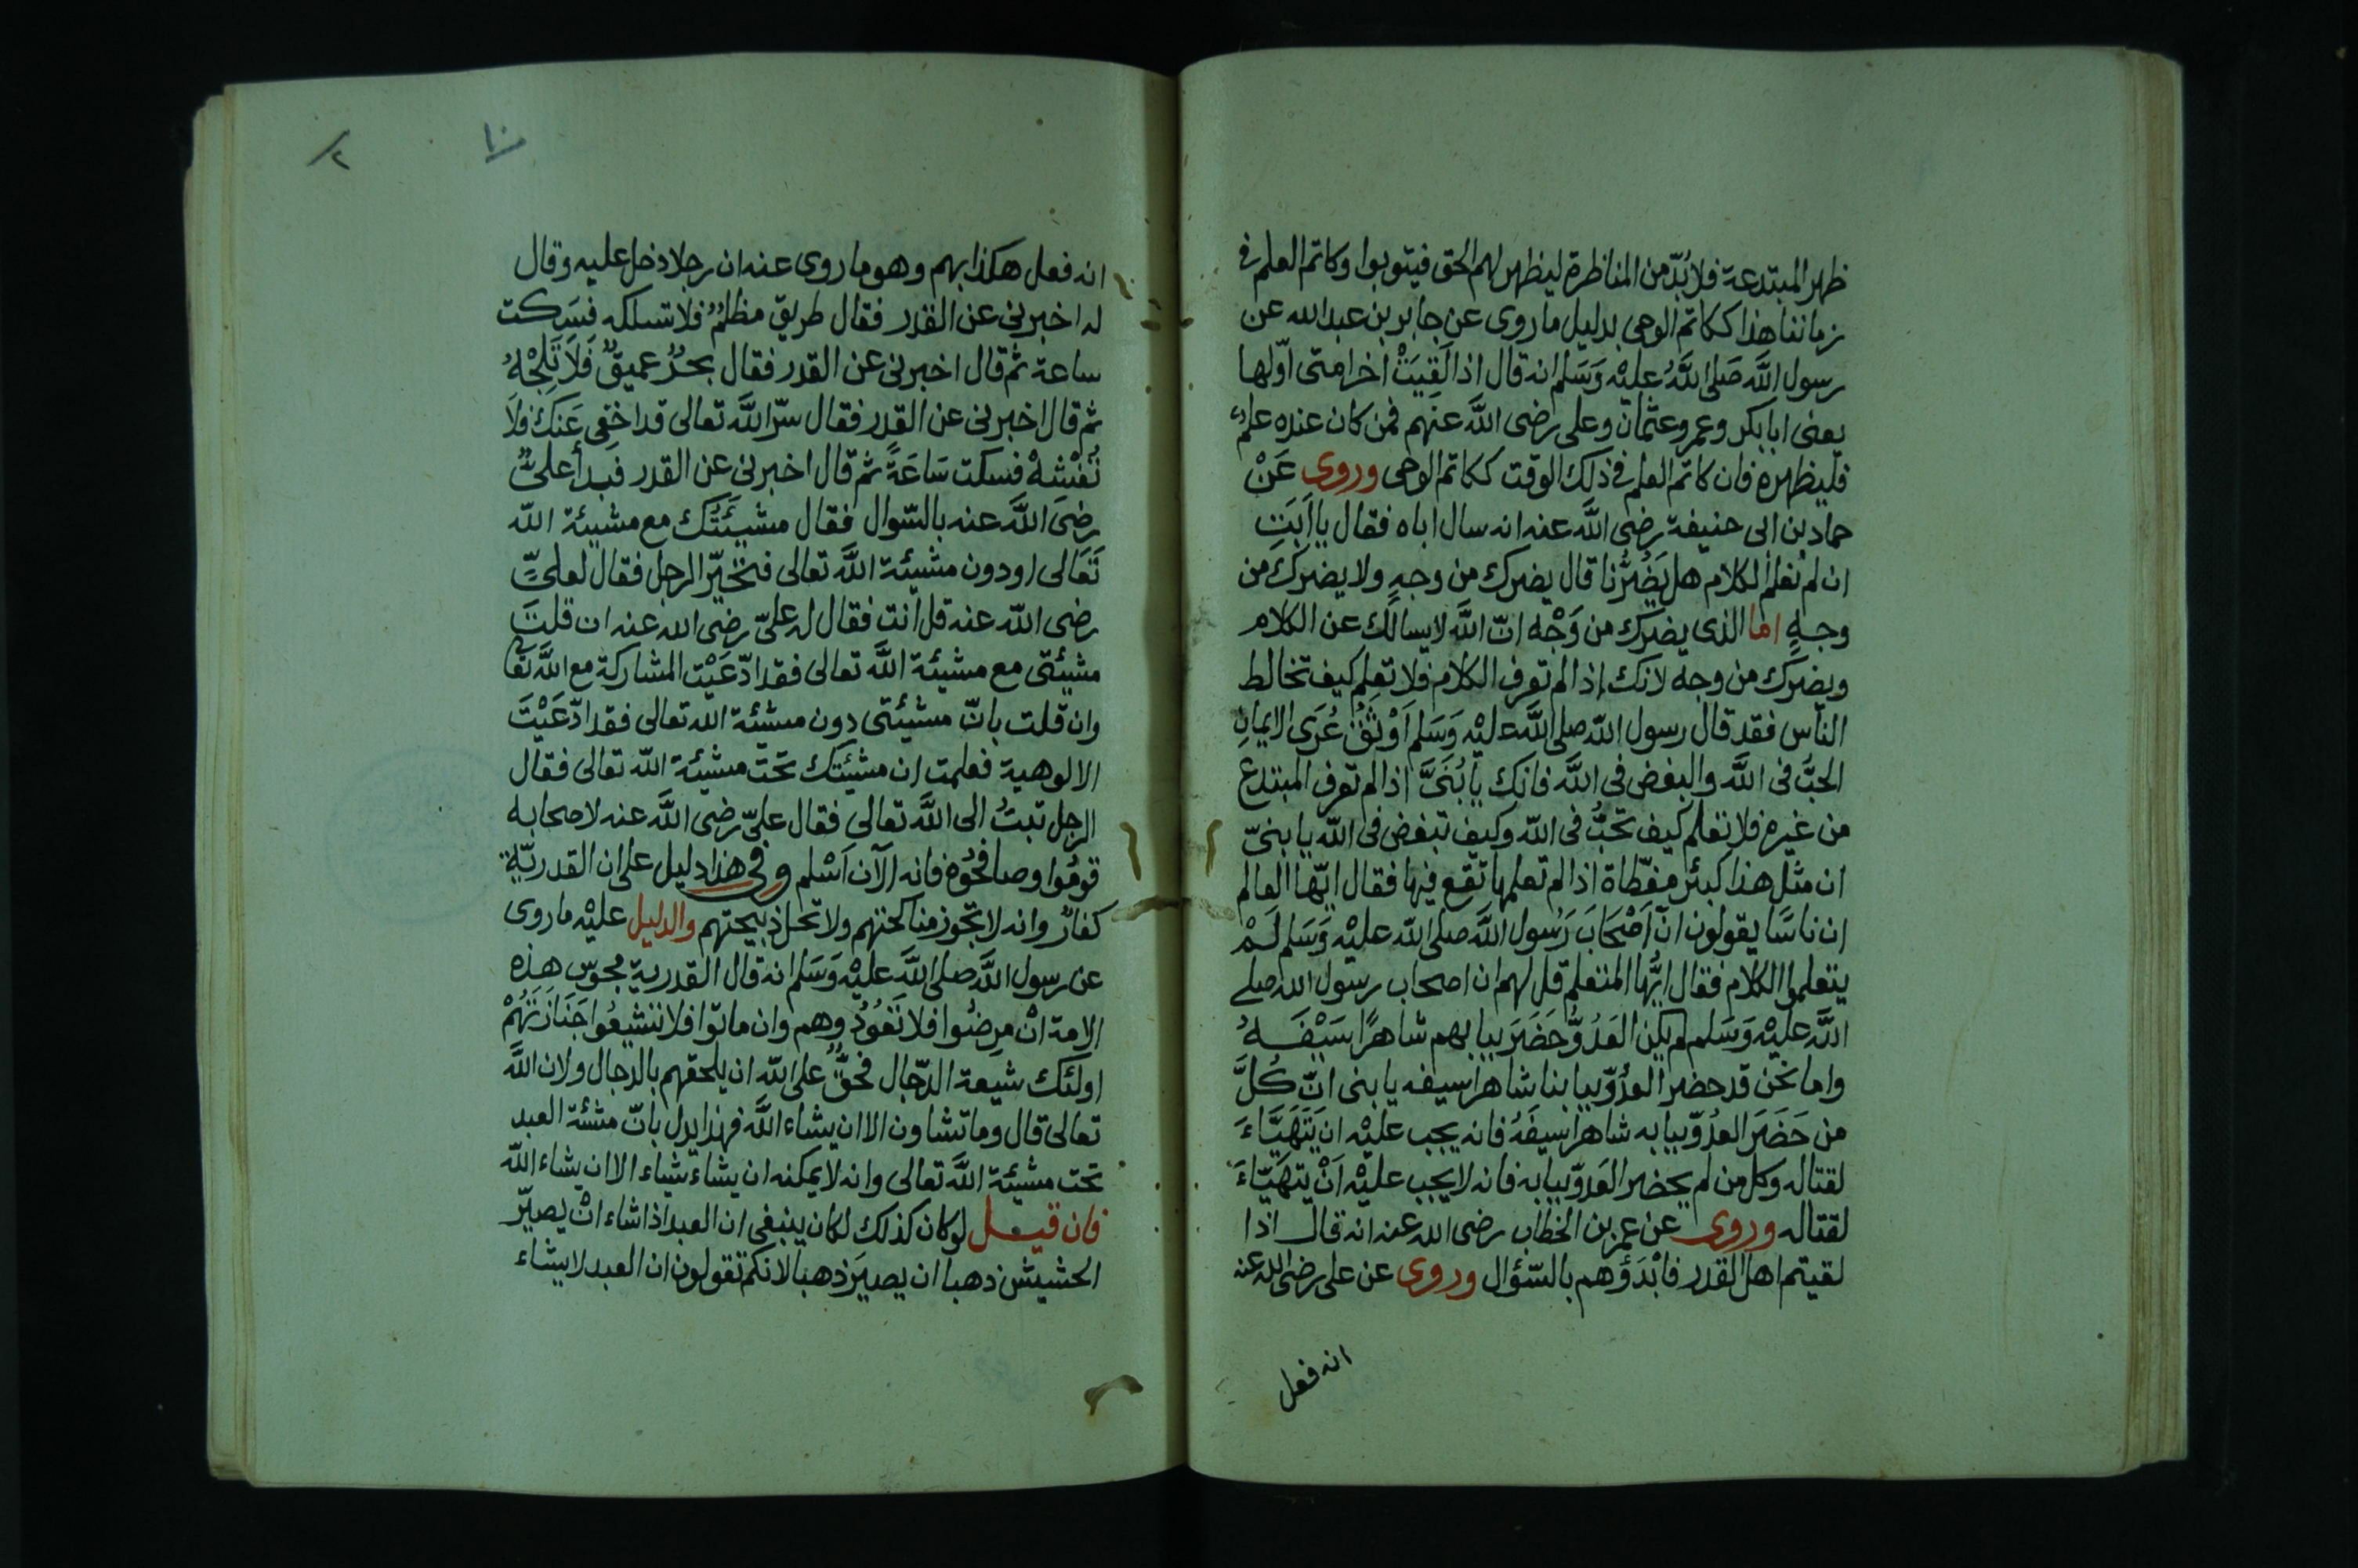 ظهر المبتدعة فلا بُدّ من المناظرة ليظهر لهم الحق فيتوبوا وكاتم العلم فى
زماننا هذا ككاتم الوحى بدليل ما روى عن جابر بن عبد الله عن
رسول اللَّه صَلى اللَّهُ عليْه وَسَلم انه قال اذا لَقِيَتْ اخرامتى اوّلها
يعنى ابابكر وعمر وعثمان وعلى رضى اللَّه عنهم فمن كان عنده علمٌ
فليظهره فان كاتم العلم فى ذلك الوقت ككاتم الوحى وروى عَنْ
حماد بن ابى حنيفة رضى اللَّه عنه انه سال اباه فقال يا ابَتِ
ان لم نعلم الكلام هل يَضُرُّنا قال يضرك من وجهٍ ولا يضركَ من
وجهٍ اما الذى يضرك من وَجْه انّ اللَّه لا يسالك عن الكلام
ويضرك من وجه لانك إذا لم تعرف الكلام فلا تعلم كيف تخالط
الناس فقد قال رسول اللّه صلى اللَّه عليْه وَسَلم اَوْثَقُ عُرَى الايمانِ
الحبُّ فى اللَّه والبغض فى اللَّه فانك يا بُنَىَّ اذا لم تعرف المبتدع
من غيره فلا تعلم كيف تحبُّ فى اللّه وكيف تبغض فى اللّه يا بنىّ
ان مثل هذا كبئر مغطّاة اذا لم تعلمها تقع فيها فقال ايّها العالم
ان ناسًا يقولون انّ اَصْحَابَ رَسُول اللَّه صلى اللّه عليْه وَسَلم لَمْ
يتعلموا الكلام فقال ايُّها المتعلم قل لهم ان اصحاب رسول الله صلى
اللَّه عليْه وَسَلم لم يكن العَدُوُّ حَضَرَ ببابهم شاهرًا سَيْفَهُ
واما نحن قد حضر العدُوّ ببابنا شاهرا سيفه يا بنى انّ كُلَّ
من حَضَرَ العدُوّ ببابه شاهرا سيفَهُ فانه يجب عليْه ان يَتَهَيَّاءَ
لقتاله وكل من لم يحضر العَدوّ ببابه فانه لا يجب عليْه اَنْ يتهَيّاءَ
لقتاله وروى عن عمر بن الخطاب رضى الله عنه انه قال اذا
لقيتم اهل القدر فابْدَؤُهم بالسّؤال وروى عن على رضى الله عنه
انه فعل
انه فعل هكذا بهم وهو ما روى عنه ان رجلا دخل عليه وقال
له اخبرنى عن القدر فقال طريق مظلمٌ فلا تسلكه فسَكت
ساعة ثم قال اخبرنى عن القدر فقال بحرٌ عميقٌ فَلاَ تَلِجْهُ
ثم قال اخبرنى عن القدر فقال سرّ اللَّه تعالى قد اخفِى عَنكَ فلاَ
تُفْشهْ فسكت سَاعَةً ثم قال اخبرنى عن القدر فبدأ علىٌّ
رضىَ اللَّه عنه بالسّوال فقال مشيئَتُك مع مشيئة اللّه
تَعَالى او دون مشيئة اللَّه تعالى فتخيّر الرجل فقال لعلىٍّ
رضى اللّه عنه قل انت فقال له علىّ رضى الله عنه ان قلتَ
مشيئتى مع مشيئة اللَّه تعالى فقد ادّعَيْت المشاركة مع اللَّه تعَا
وان قلت بانّ مشيئتى دون مشيئة الله تعالى فقد ادّعَيْتَ
الالوهية فعلمت ان مشيئتك تحت مشيئة اللّه تعالى فقال
الرجل تبتُ الى اللَّه تعالى فقال علىّ رضى اللَّه عنه لاصحابه
قومُوا وصافحُوه فانه الآن اَسْلم وفى هذا دليل على ان القدريّة
كفارٌ وانه لا تجوز مناكحتهم ولا تحل ذبيحتهم والدليل عليْه ما روى
عن رسول اللَّه صلى اللَّه عليْه وَسَلم انه قال القدرية مجوس هذه
الامة انْ مرضُوا فلا تَعُودُوهم وان ماتوا فلا تشيعُوا جَنَازَتَهُمْ
اولئك شيعة الدّجال فحقٌّ على اللّه ان يلحقهم بالدجال ولان اللَّه
تعالى قال وما تشاون الا ان يشاء اللَّه فهذا يدل بانّ مشئة العبد
تحت مشيئة اللَّه تعالى وانه لا يمكنه ان يشاء شياء الا ان يشاء اللّه
فان قيل لو كان كذلك لكان ينبغى ان العبد اذا شاء انْ يصيّر
الحشيش ذهبا ان يصيَر ذهبا لانكم تقولون ان العبد لا يشاء